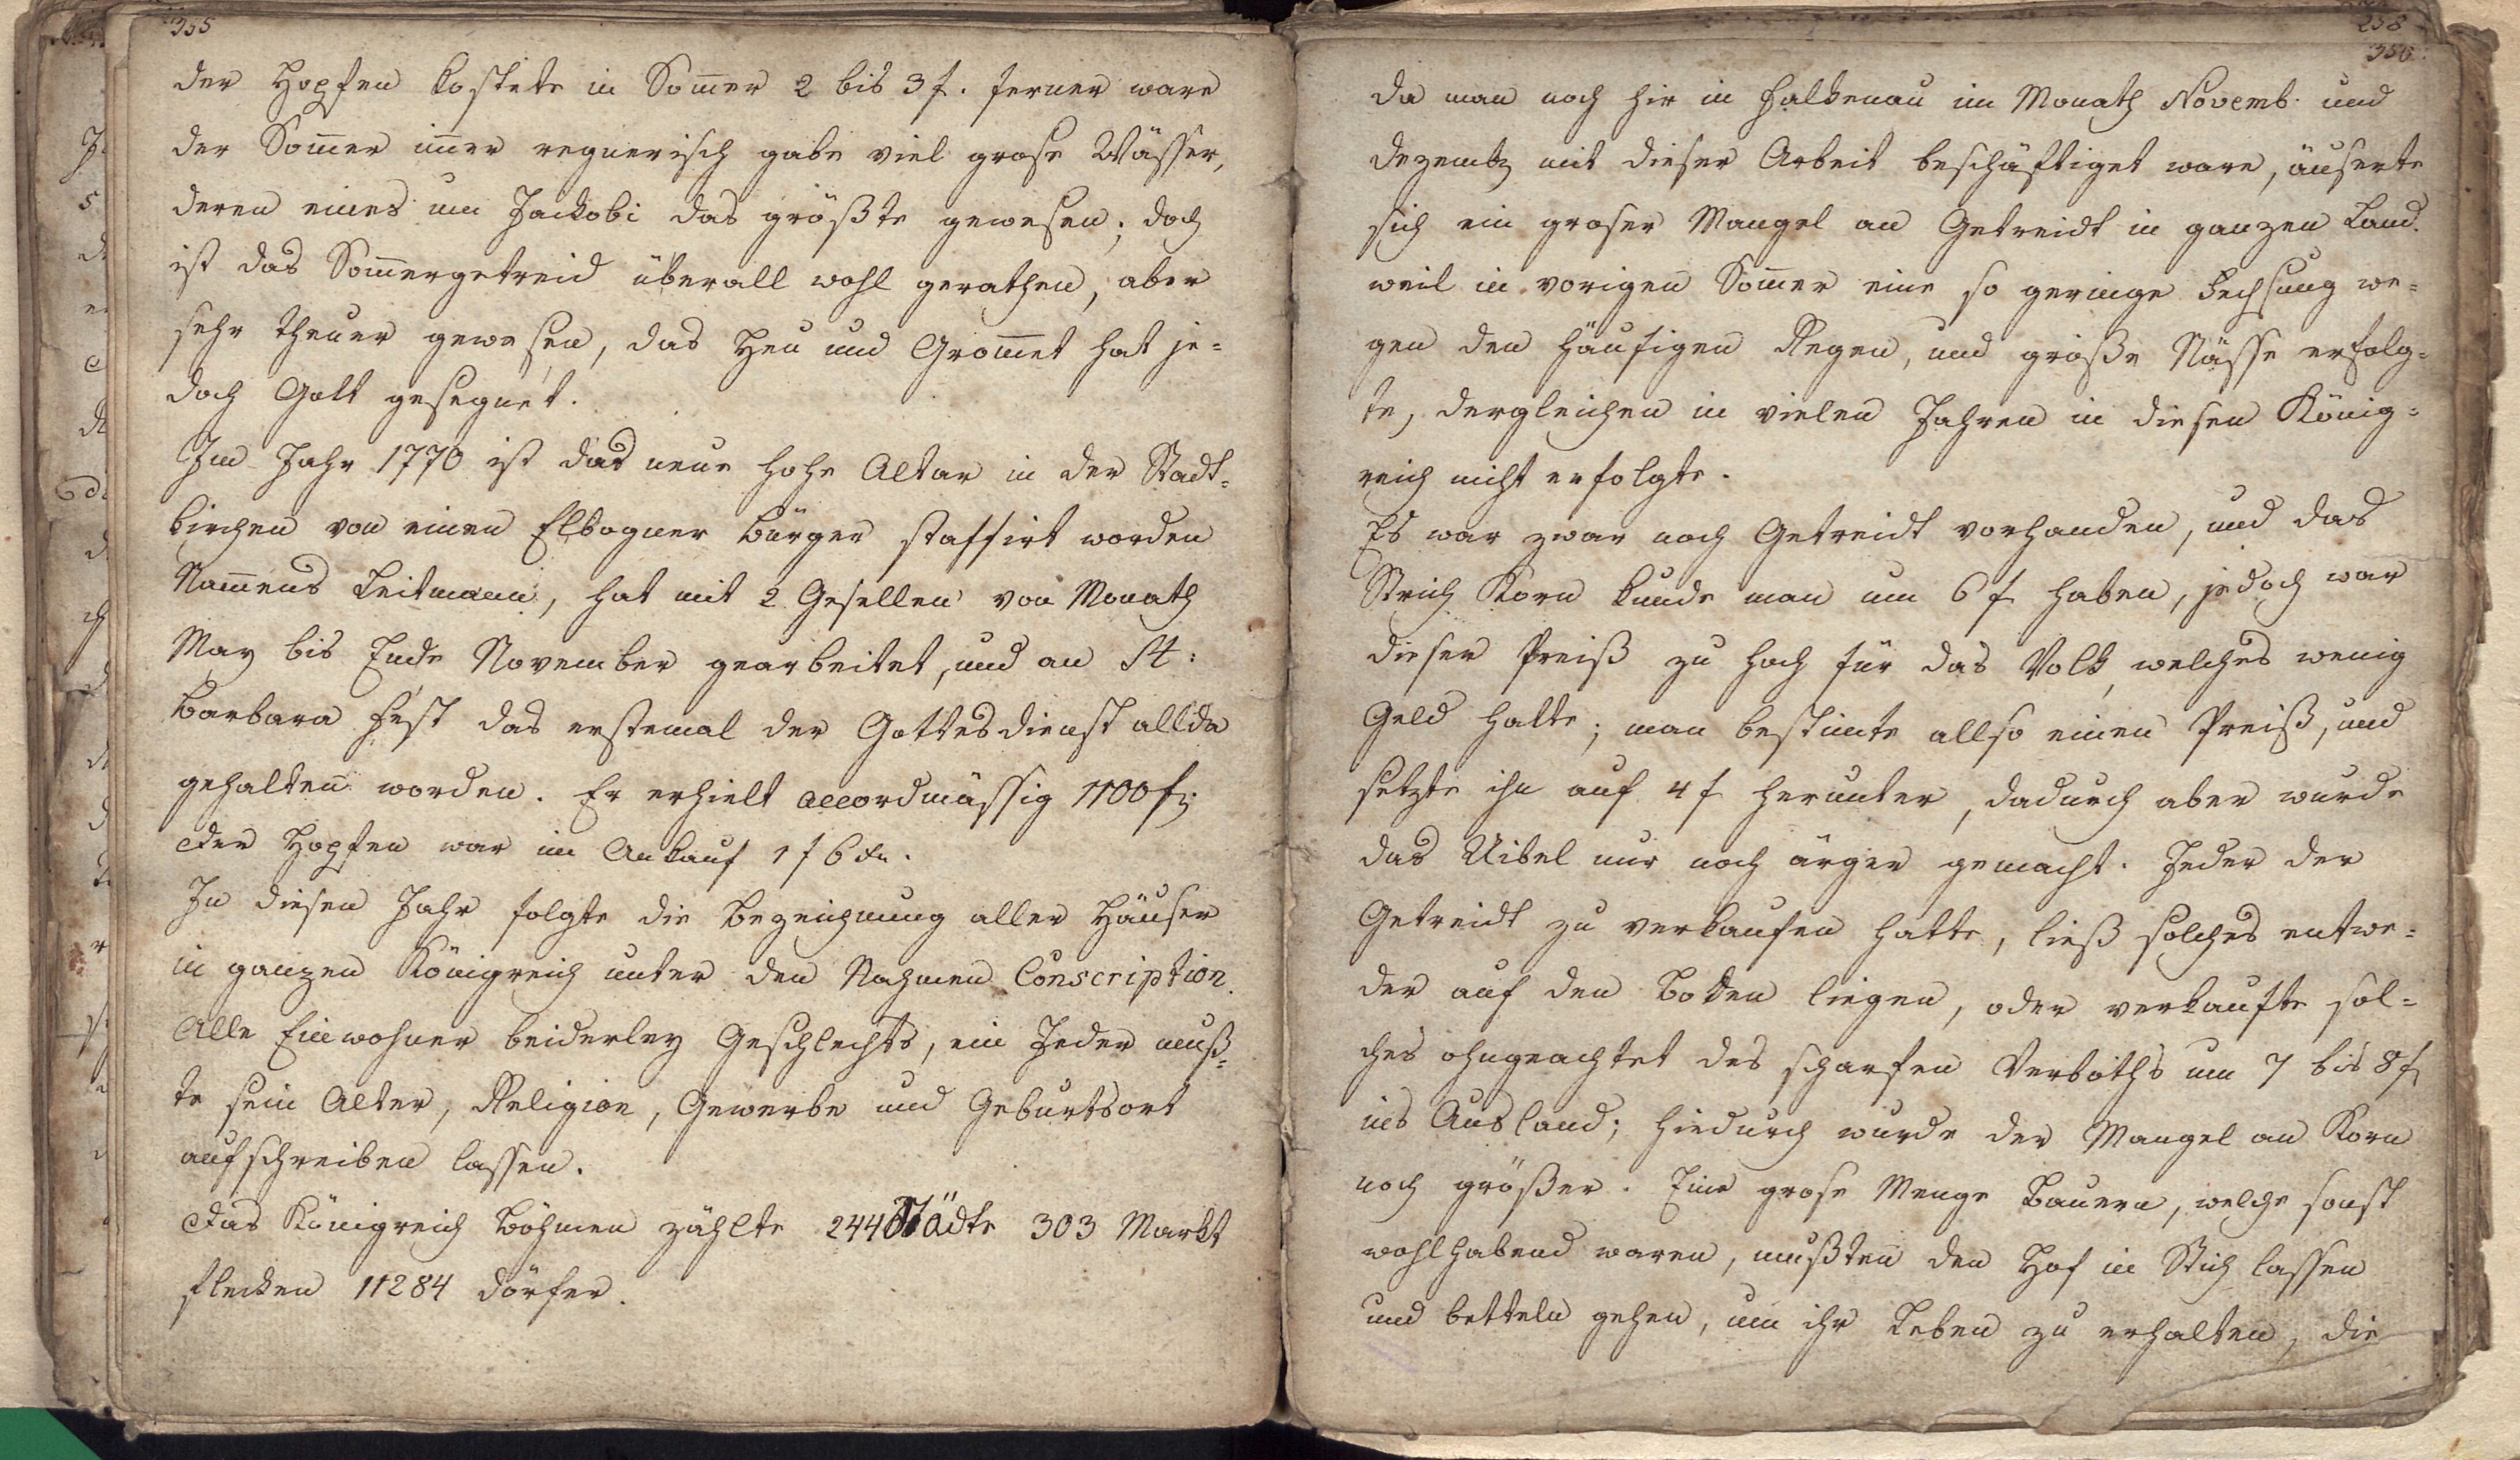 355
der Hopfen kostete in Som̄er 2 bis 3 f. ferner ware
der Som̄er im̄er regnerisch gabe viel grose Wässer,
deren eines um Jackobi das größte gewesen; doch
ist das Som̄ergetreid überall wohl gerathen, aber
sehr theuer gewesen, das Heu und Grom̄et hat je=
doch Gott gesegnet.
Im Jahr 1770 ist das neue hohe Altar in der Stadt=
kirchen von einen Elbogner Bürger staffirt worden
Nam̄ens Leitmann, hat mit 2 Gesellen von Monath
May bis Ende November gearbeitet, und an St:
Barbara Fest das erstemal der Gottesdienst allda
gehalten worden. Er erhielt accordmässig 1100 f;
der Hopfen war im Ankauf 1 f 6 xr.
In diesen Jahr folgte die Bezeichnung aller Häuser
in ganzen Königreich unter den Nahmen Conscription.
Alle Einwohner beiderley Geschlechts, ein Jeder muß=
te sein Alter, Religion, Gewerbe und Geburtsort
aufschreiben lassen.
Das Königreich Böhmen zählte 244 Städte 303 Markt
flecken 11284 Dörfer.
258
356
da man noch hir in Falkenau im Monath Novemb. und
Dezemb mit dieser Arbeit beschäftiget ware, äuserte
sich ein groser Mangel an Getreidt in ganzen Land.
weil in vorigen Som̄er eine so geringe Fechsung we=
gen den häufigen Regen, und große Nässe erfolg=
te, dergleichen in vielen Jahren in diesen König=
reich nicht erfolgte.
Es war zwar noch Getreidt vorhanden, und das
Strich Korn kunde man um 6 f haben, jedoch war
dieser Preiß zu hoch für das Volk, welches wenig
Geld hatte; man bestimte allso einen Preiß, und
setzte ihn auf 4 f herunter, dadurch aber wurde
das Uibel nur noch ärger gemacht. Jeder der
Getreidt zu verkaufen hatte, ließ solches entwe=
der auf den Boden liegen, oder verkaufte sol=
ches ohngeachtet des scharfen Verboths um 7 bis 8 f
ins Ausland; hiedurch wurde der Mangel an Korn
noch größer. Eine grose Menge Bauern, welche sonst
wohlhabend waren, mußten den Hof in Stich lassen
und betteln gehen, um ihr Leben zu erhalten, die